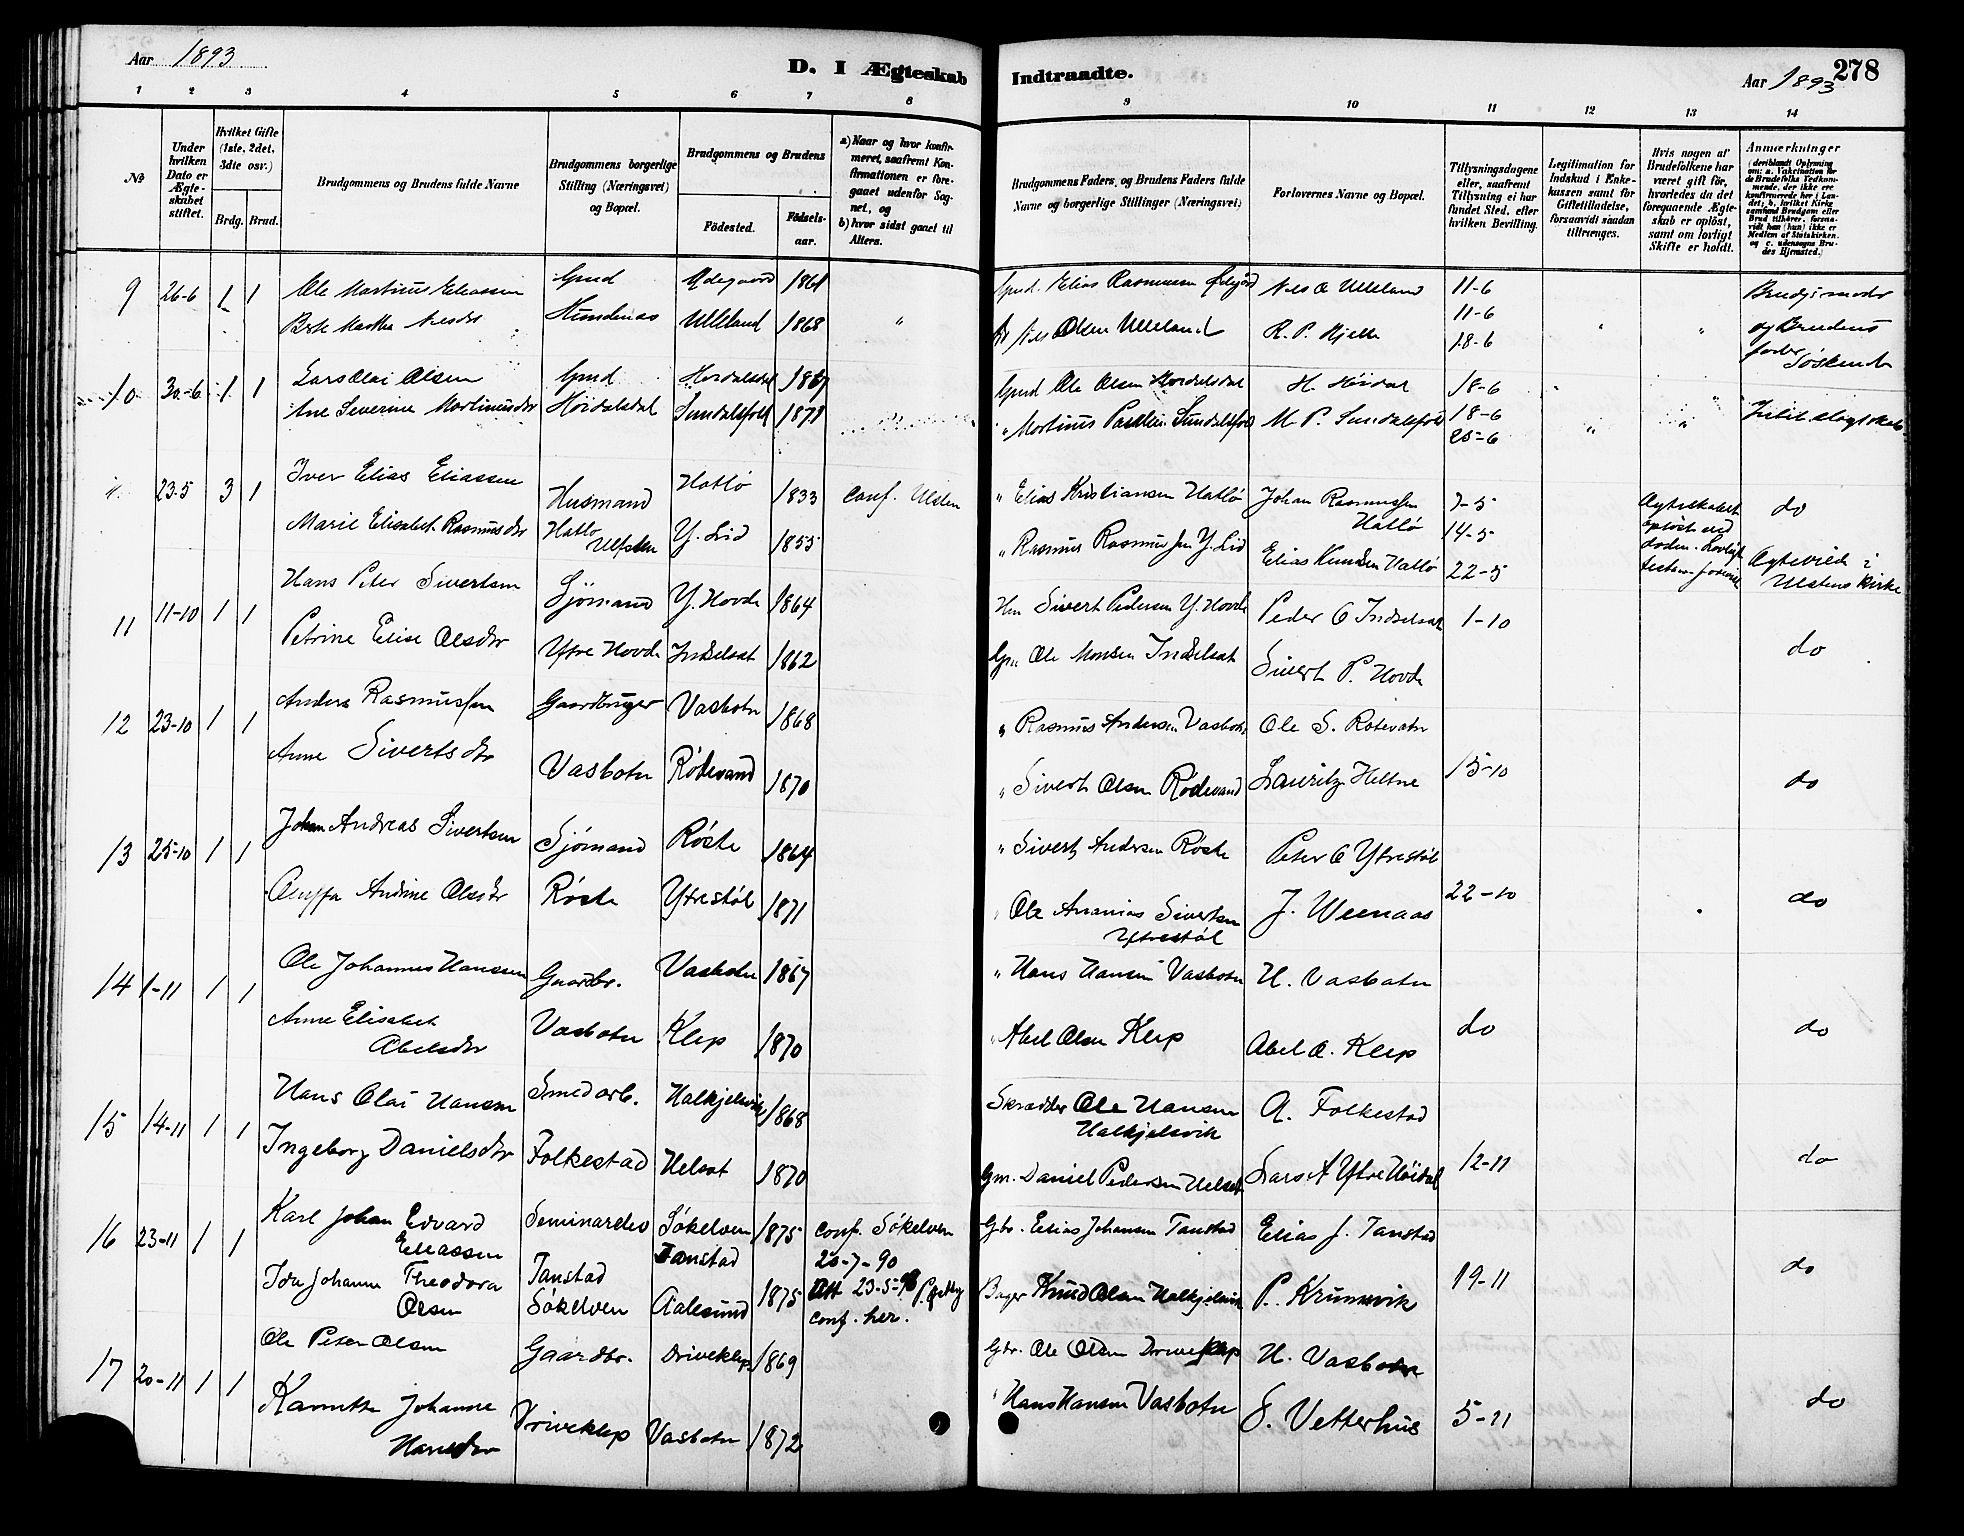 Aar 1893
D. I Ægteskab
Indtraadte.
Aar 1893
278
1 2 3 4 5 6 7 8 9 10 11 12 13 14
No
Under hvilken Dato er Ægteskabet stiftet.
Hvilket Gifte (1ste, 2det, 3die osv.)
Brdg. Brud.
Brudgommens og Brudens fulde Navne
Brudgommens borgerlige Stilling (Næringsvei) og Bopæl.
Brudgommens og Brudens
Fødested.
Fødselsaar.
a) Naar og hvor konfirmeret, saafremt Konfirmationen er foregaaet udenfor Sognet, og
b) hvor sidst gaaet til Alters.
Brudgommens Faders, og Brudens Faders fulde Navne og borgerlige Stillinger (Næringsvei)
Forlovernes Navne og Bopæl.
Tillysningsdagene eller, saafremt Tillysning ei har fundet Sted, efter hvilken Bevilling.
Legitimation for Indskud i Enkekassen samt for Giftetilladelse, forsaavidt saadan tiltrænges.
Hvis nogen af Brudefolkene har været gift før, hvorledes da det foregaaende Ægteskab er opløst, samt om lovligt Skifte er holdt.
Anmærkninger
9 26-6 1 1 Ole Martinus Eliassen Gmd 1861 Gmd. Elias Rasmussen Nils O Ulleland 11-6 Brudg. moder
Ulleland 1868 " Nils Olsen Ulleland R. P. Hjelle 11-6
18-6 og Brudens fader Søskende
10 30-6 1 1 Lars Olai Olsen Gmd 1867 Gmd Ole Olsen H. Høidal 18-6
Ane Severine Martinusdtr Høidalsdal Sundalsfold 1871 " Martinus Sundalsfold M. P. Sundalsfold 18-6
25-6
23-5 3 1 Iver Elias Eliassen Husmand Hatlø 1833 conf. Ulsten " Elias Kristiansen Hatlø Johan Rasmussen Hatlø 7-5 do
Marie Elisabet Rasmusdtr Hatlø Ulfsten Y. Lid 1855 " Rasmus Rasmussen Y. Lid Elias Knudsen Hatlø 14-5
22-5 Ægteviede i Ulstens Kirke
11 11-10 1 1 Hans Peter Sivertsen Sjømand Y. Hovde 1864 Hm Sivert Pedersen Y. Hovde Peder O Indselset 1-10
Petrine Elise Olsdtr Ytre Hovde Indselset 1862 Ole Monsen Indselset Sivert P. Hovde do
12 23-10 1 1 Anders Rasmussen Gaardbruger Vasbotn 1868 " Rasmus Andersen Vasbotn Ole S. Rotevatn
Anne Sivertsdtr Vasbotn Rødevand 1870 " Sivert Olsen Rødevand Lauritz Heltne 15-10 do
13 25-10 1 1 Johan Andreas Sivertsen Sjømand Røste 1864 " Sivert Andersen Røste Peter O Ytrestøl
Andrine Olsdtr Røste Ytrestøl 1871 " Ole Ananias Sivertsen Ytrestøl J. Weenaas 22-10 do
14 1-11 1 1 Ole Johannes Hanssen Gaardbr. Vasbotn 1867 " Hans Hansen Vasbotn H. Vasbotn
Anne Elisabet Abelsdtr Vasbotn Klep 1870 " Abel Olsen Klep Abel O. Klep do do
15 14-11 1 1 Hans Olai Hansen Smedarb. Halkjelsvik 1868 Skrædder Ole Hansen Halkjelsvik A. Folkestad
Ingeborg Danielsdtr Folkestad Helset 1870 Gm. Daniel Pedersen Helset Lars A Ytre Høidal 12-11 do
16 23-11 1 1 Karl Johan Edvard Eliassen Seminarelev Søkelven Tanstad 1875 conf. Søkelven 20-7-90 Gbr. Elias Johansen Tanstad Elias J. Tanstad
Ida Johanne Theodora Olsen Tanstad Søkelven Aalesund 1875 conf. her. Bager Knud Olsen Halkjelsvik P. Krumsvik 19-11 do
17 20-11 1 1 Ole Peter Olsen Gaardbr. Driveklep 1869 Gbr. Ole Olsen Driveklep H. Vasbotn
Johanne Hansdtr Driveklep Vasbotn 1872 " Hans Hansen Vasbotn S. Vetterhus 5-11 do